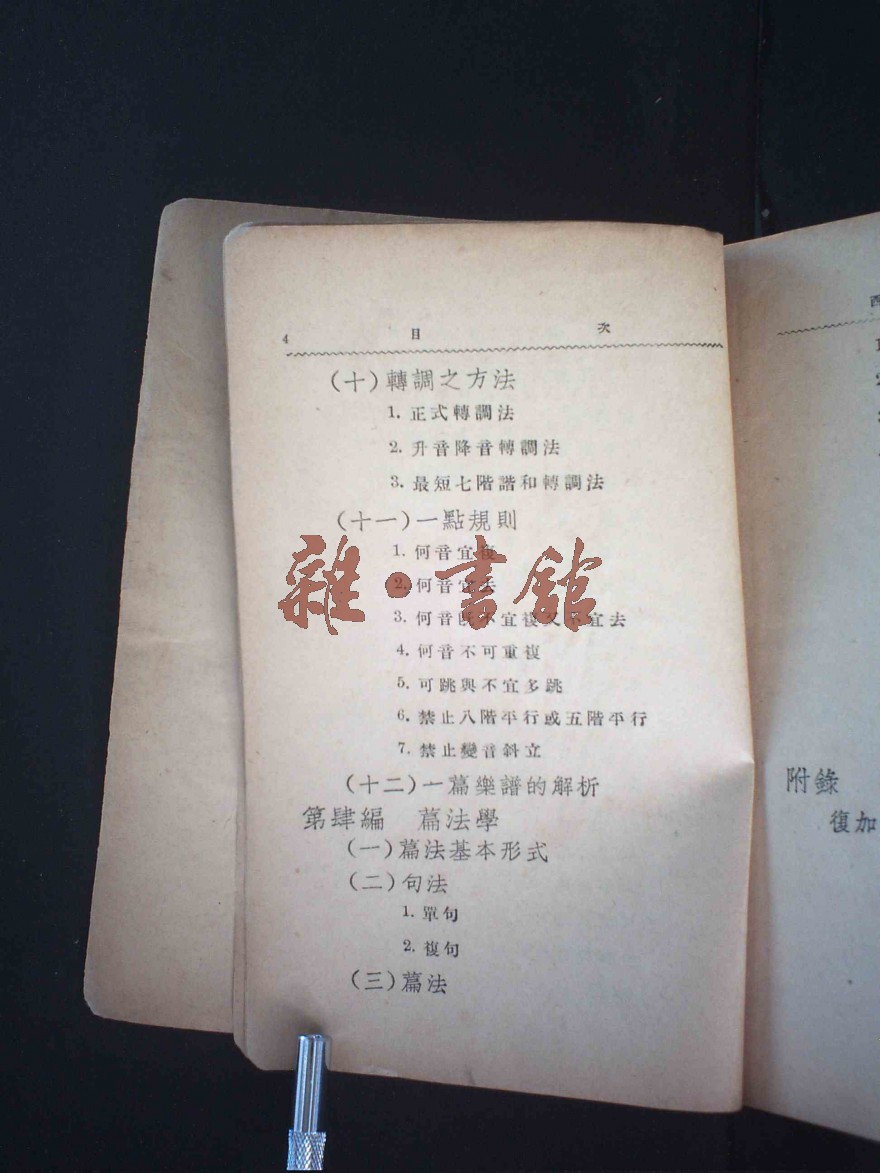 4 目 次
(十)轉調之方法
1. 正式轉調法
2. 升音降音轉調法
3. 最短七階諧和轉調法
(十一)一點規則
1. 何音宜複
2. 何音宜去
3. 何音既不宜複又不宜去
4. 何音不可重複
5. 可跳與不宜多跳
6. 禁止八階平行或五階平行
7. 禁止變音斜立
(十二)一篇樂譜的解析
第肆編 篇法學
(一)篇法基本形式
(二)句法
1. 單句
2. 複句
(三)篇法
雜·書館
附錄
復加